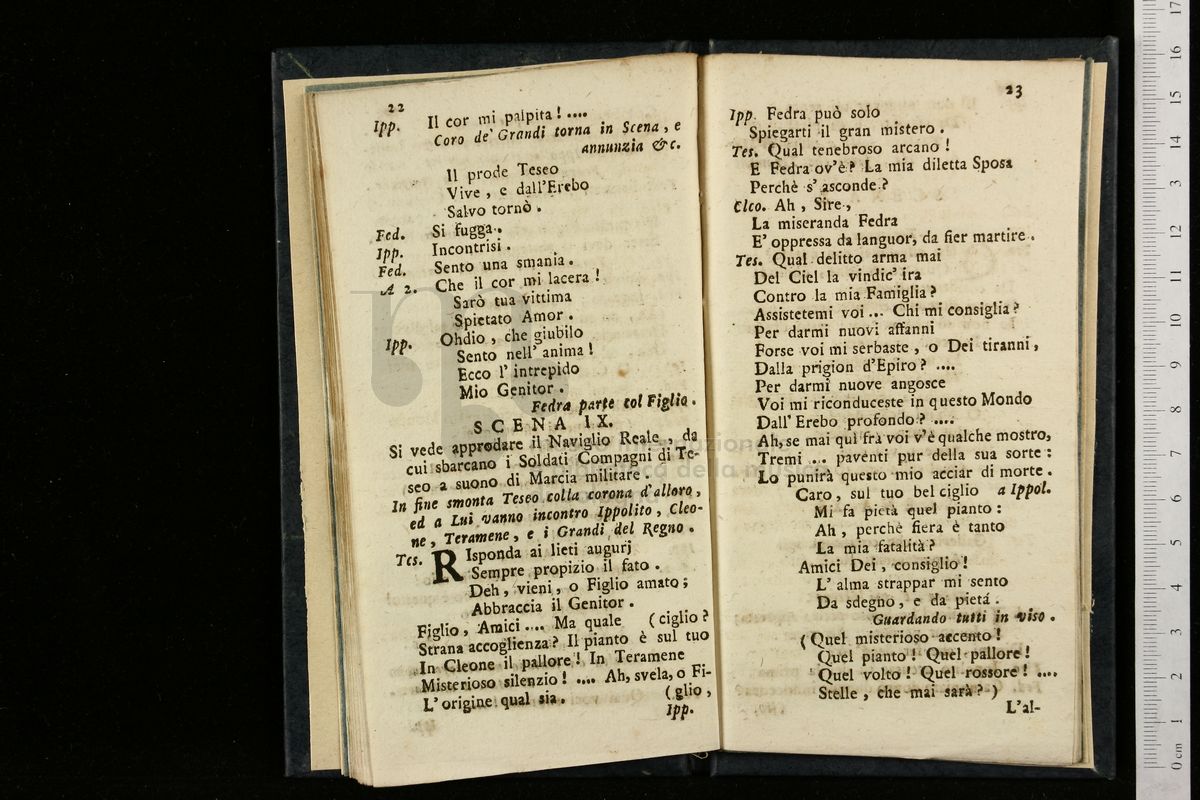 22
Ipp. Il cor mi palpita! ....
Coro de' Grandi torna in Scena, e
annunzia &c.
Il prode Teseo
Vive, e dall'Erebo
Salvo tornò.
Fed. Si fugga.
Ipp. Incontrisi.
Fed. Sento una smania.
A 2. Che il cor mi lacera!
Sarò tua vittima
Spietato Amor.
Ipp. Ohdio, che giubilo
Sento nell' anima!
Ecco l' intrepido
Mio Genitor.
Fedra parte col Figlio.
SCENA IX.
Si vede approdare il Naviglio Reale, da
cui sbarcano i Soldati Compagni di Te-
seo a suono di Marcia militare.
In fine smonta Teseo colla corona d'alloro,
ed a Lui vanno incontro Ippolito, Cleo-
ne, Teramene, e i Grandi del Regno.
Tes. Risponda ai lieti augurj
Sempre propizio il fato.
Deh, vieni, o Figlio amato;
Abbraccia il Genitor.
Figlio, Amici .... Ma quale (ciglio?
Strana accoglienza? Il pianto è sul tuo
In Cleone il pallore! In Teramene
Misterioso silenzio! .... Ah, svela, o Fi-
L' origine qual sia. (glio,
Ipp.
23
Ipp. Fedra può solo
Spiegarti il gran mistero.
Tes. Qual tenebroso arcano!
E Fedra ov'è? La mia diletta Sposa
Perchè s' asconde?
Cleo. Ah, Sire,
La miseranda Fedra
E' oppressa da languor, da fier martire.
Tes. Qual delitto arma mai
Del Ciel la vindic' ira
Contro la mia Famiglia?
Assistetemi voi ... Chi mi consiglia?
Per darmi nuovi affanni
Forse voi mi serbaste, o Dei tiranni,
Dalla prigion d'Epiro? ....
Per darmi nuove angosce
Voi mi riconduceste in questo Mondo
Dall' Erebo profondo? ....
Ah, se mai quì frà voi v'è qualche mostro,
Tremi ... paventi pur della sua sorte:
Lo punirà questo mio acciar di morte.
Caro, sul tuo bel ciglio a Ippol.
Mi fa pietà quel pianto:
Ah, perchè fiera è tanto
La mia fatalità?
Amici Dei, consiglio!
L' alma strappar mi sento
Da sdegno, e da pietá.
Guardando tutti in viso.
(Quel misterioso accento!
Quel pianto! Quel pallore!
Quel volto! Quel rossore! ....
Stelle, che mai sarà?)
L'al-